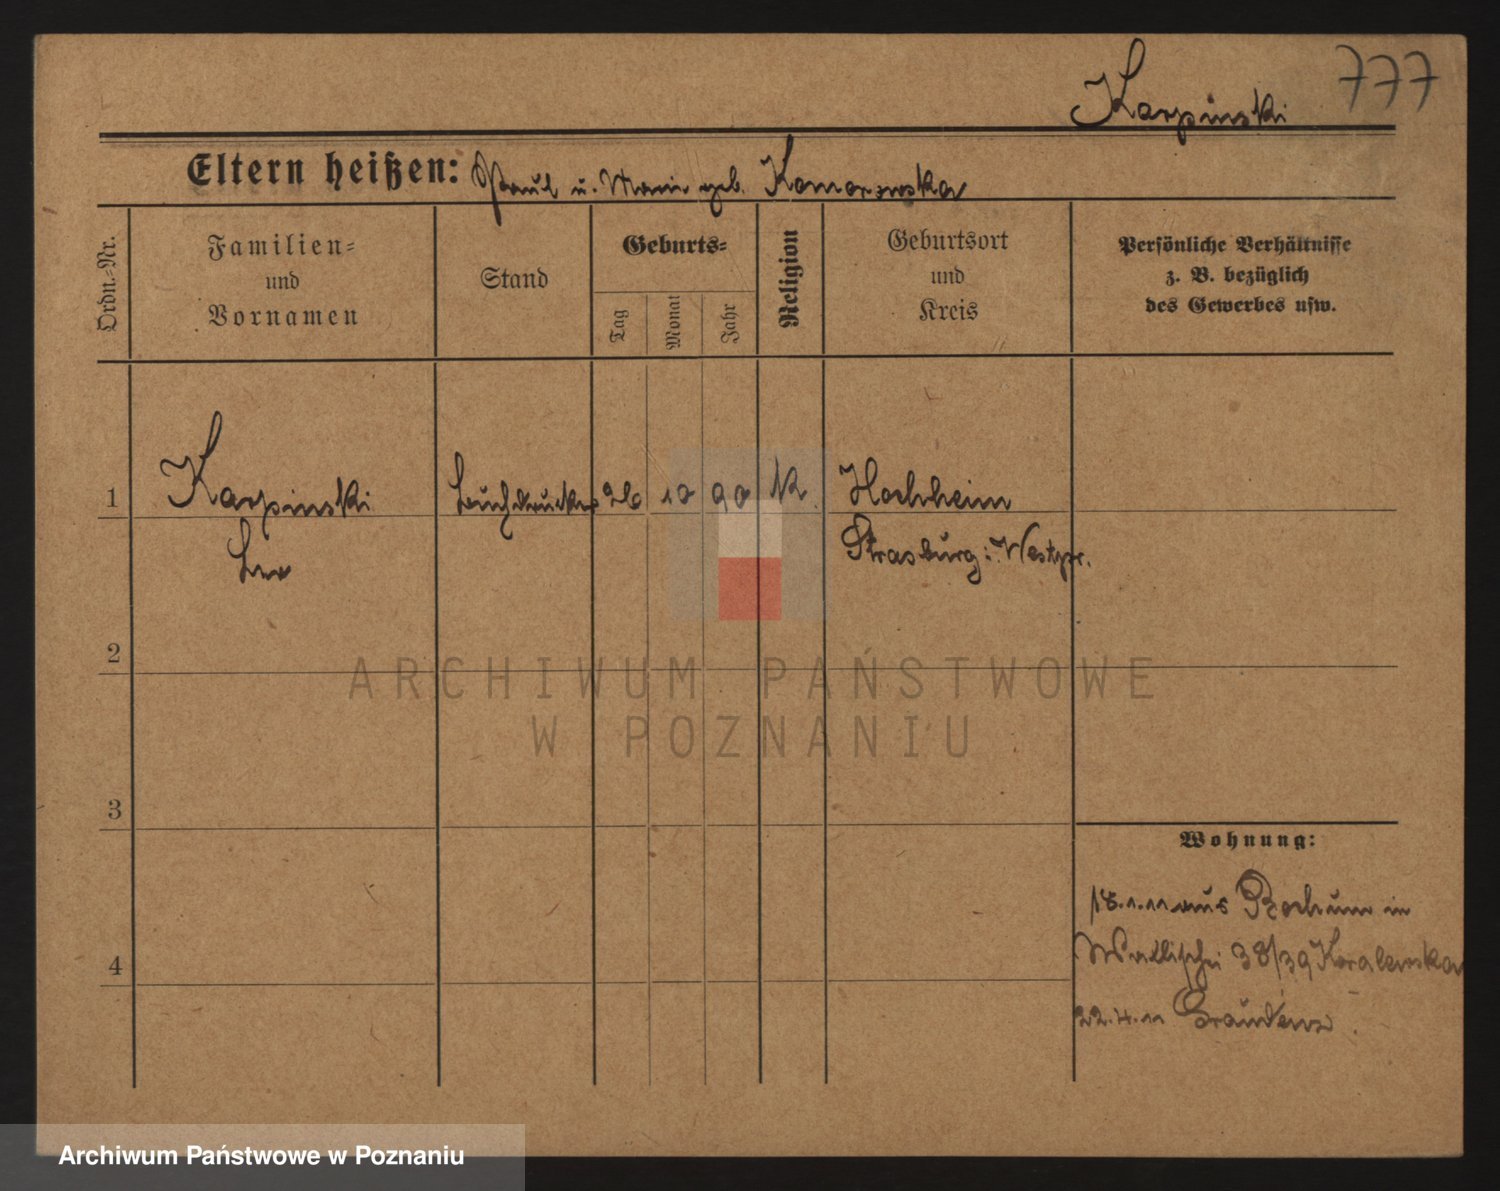 Karpinski 777
Eltern heißen: Paul u. Marie geb. Komorowska
Ordn.-Nr.
Familien-
und
Vornamen
Stand
Geburts-
Tag
Monat
Jahr
Religion
Geburtsort
und
Kreis
Persönliche Verhältnisse
z. B. bezüglich
des Gewerbes usw.
1 Karpinski Buchdrucker 26 10 90 K Hochheim
Leo Strasburg i. Westpr.
2
ARCHIWUM PAŃSTWOWE
W POZNANIU
3
Wohnung:
18.1.11 aus Bochum in
4 Wallischei 38/39 Koralewska
22.4.11 Graudenz.
Archiwum Państwowe w Poznaniu